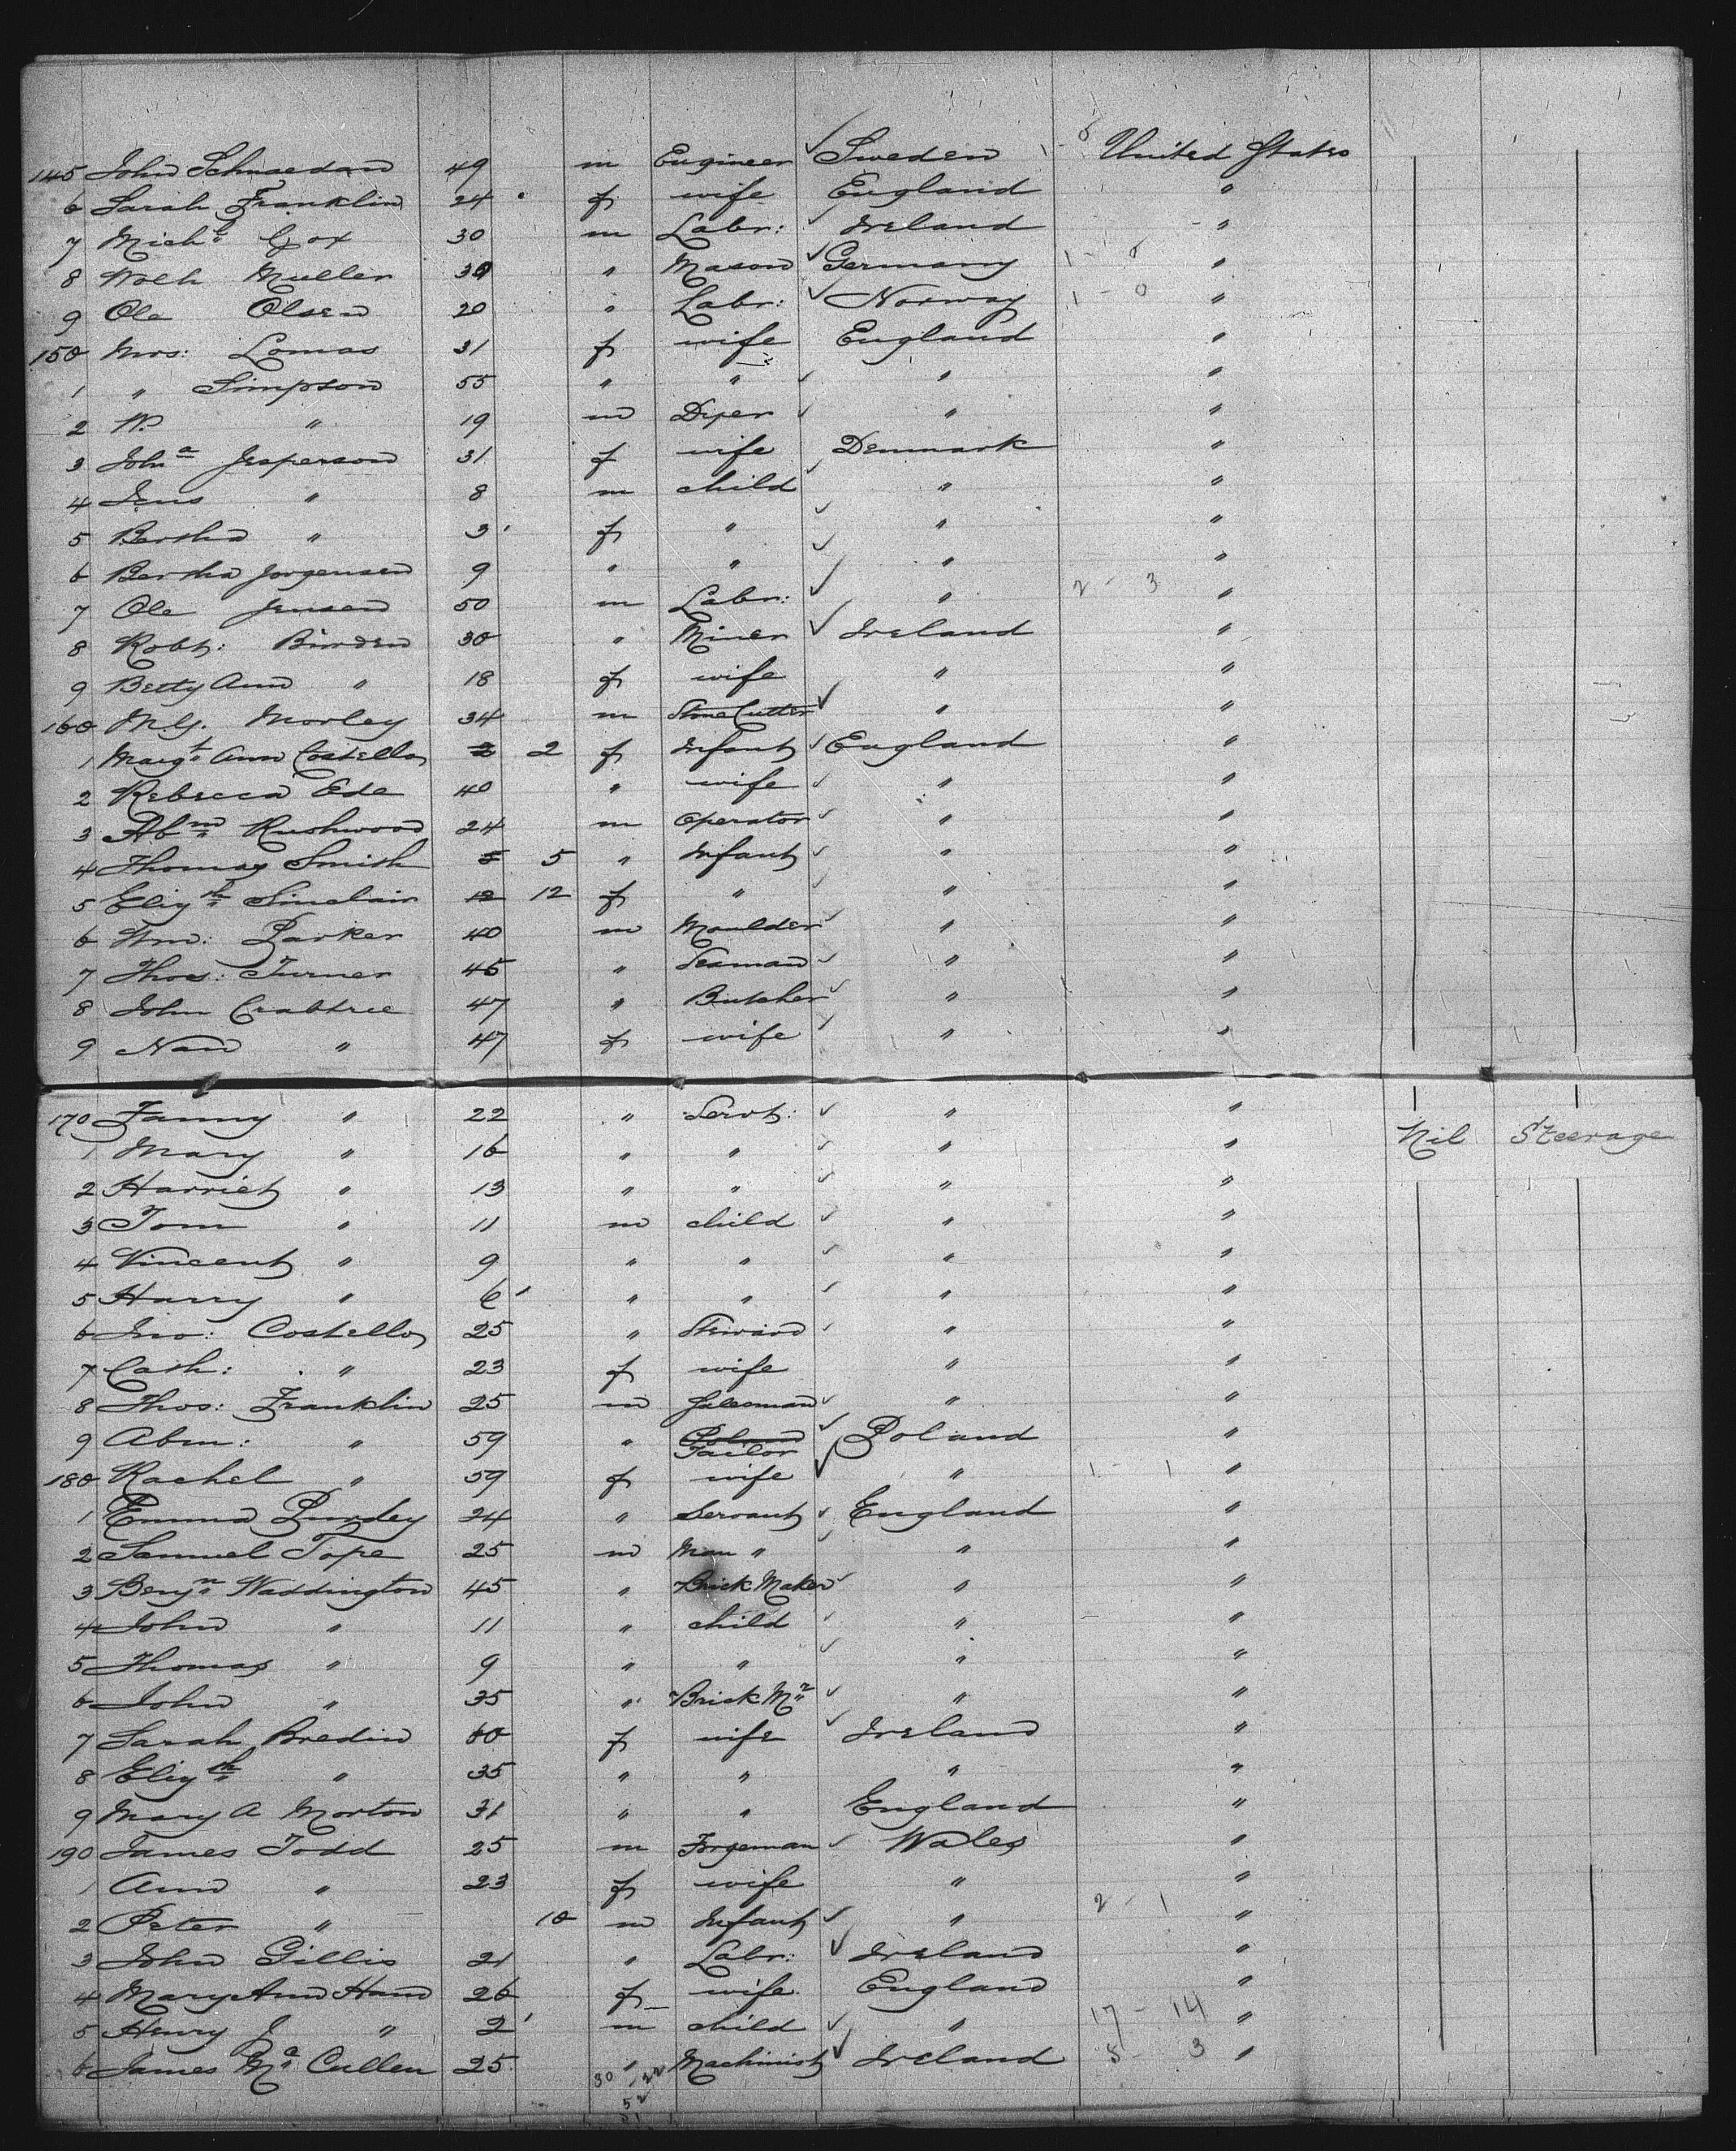 145 John Schnaedan 49 m Engineer Sweden United States
6 Sarah Franklin 24 f wife England "
7 Mich:l Cox 30 m Labr: Ireland "
8 Muller 30 " Mason Germany 1 - 0 "
9 Ole Olsen 20 " Labr: Norway 1 - 0 "
150 Mrs: Lomas 31 f wife England "
1 " Simpson 55 " " " "
2 W. " 19 m Dyer " "
3 Joh:a Jesperson 31 f wife Denmark "
4 Jens " 8 m child " "
5 Bertha " 3 f " " "
6 Bertha Jorgensen 9 " " " "
7 Ole Jensen 50 m Labr: " 2 - 3 "
8 Robt: Burden 30 " Miner Ireland "
9 Betty Ann " 18 f wife " "
160 Morley 34 m Stone Cutter " "
1 Margt Ann Costello 2 2 f Infant England "
2 Rebecca Ede 40 " wife " "
3 Abm Rushwood 24 m Operator " "
4 Thomas Smith 5 5 " Infant " "
5 Elizth Sinclair 12 12 f " " "
6 Wm: Parker 40 m Moulder " "
7 Thos: Turner 45 " Seaman " "
8 John Crabtree 47 " Butcher " "
9 Nan " 47 f wife " "
170 Fanny " 22 " Servt: " "
1 Mary " 16 " " " " Nil Steerage
2 Harriet " 13 " " " "
3 Tom " 11 m child " "
4 Vincent " 9 " " " "
5 Harry " 6 " " " "
6 Jno: Costello 25 " Steward " "
7 Cath: " 23 f wife " "
8 Thos: Franklin 25 m Salesman " "
9 Abm: " 59 " Poland Tailor Poland "
180 Rachel " 59 f wife " 1 - 1 "
1 Emma Purdey 24 " Servant England "
2 Samuel Tope 25 m Man " " "
3 Benjn Waddington 45 " Brick Maker " "
4 John " 11 " child " "
5 Thomas " 9 " " " "
6 John " 35 " Brick Mr " "
7 Sarah Bredin 60 f wife Ireland "
8 Elizth " 35 " " " "
9 Mary A Morton 31 " " England "
190 James Todd 25 m Forgeman Wales "
1 Ann " 23 f wife " "
2 Peter " 10 m Infant " 2 - 1 "
3 John Gillis 21 " Labr: Ireland "
4 Mary Ann Hand 26 f wife England "
5 Henry J " 2 m child " 17 - 14 "
6 James Mc Cullen 25 " Machinist Ireland 5 - 3 "
30 - 22
52